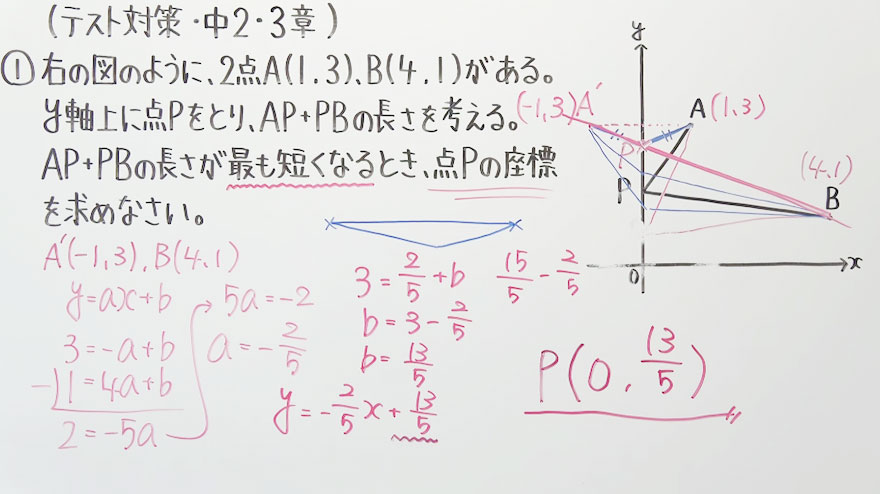 (テスト対策・中2・3章)
① 右の図のように、2点A(1.3)、B(4.1)がある。
y軸上に点Pをとり、AP+PBの長さを考える。
AP+PBの長さが最も短くなるとき、点Pの座標
を求めなさい。
A'(-1,3), B(4,1)
y=ax+b
3=-a+b
-)1=4a+b
2=-5a
5a=-2
a=-2/5
3=2/5+b
b=3-2/5
b=13/5
y=-2/5x+13/5
15/5-2/5
P(0,13/5)
y
(-1,3)A'
A(1,3)
P'
P
(4.1)
B
O
x